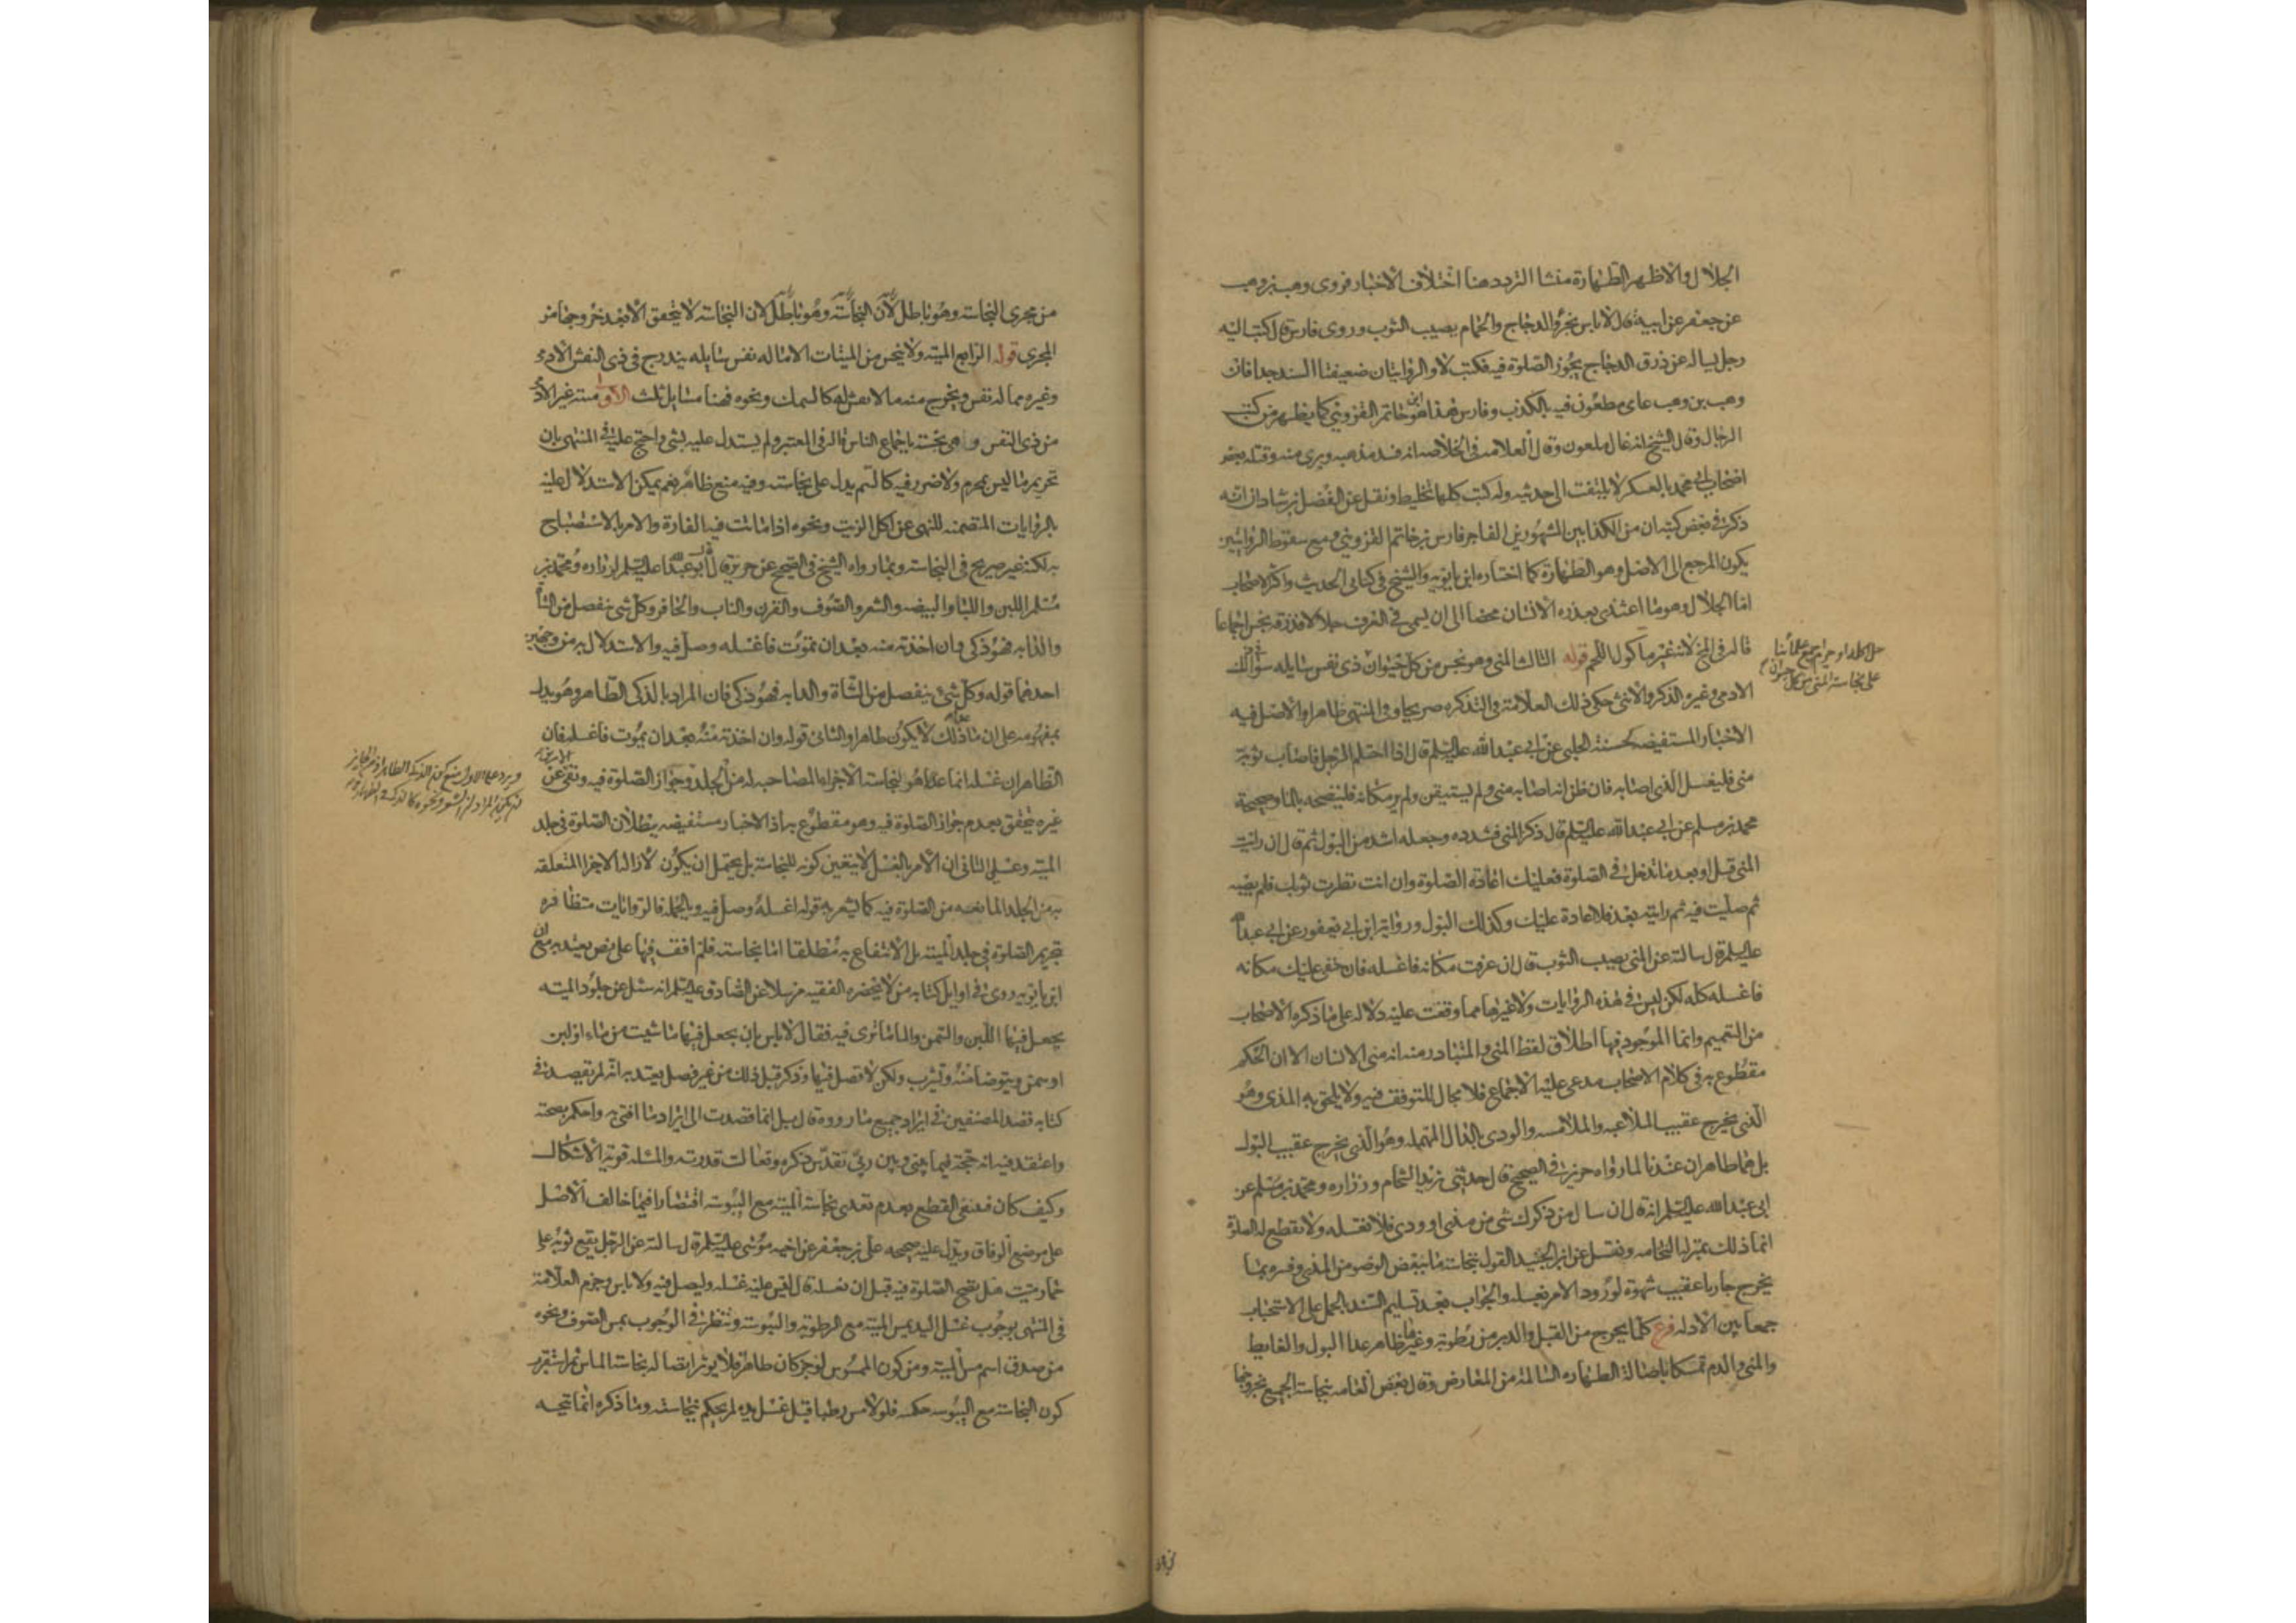 الجلال والاظهر الطهارة منشا التردد هنا اختلاف الاخبار فروى وهب بن وهب
عن جعفر عن ابيه قال لا باس بخرؤ الدجاج والحمام يصيب الثوب وروى فارس قال كتب اليه
رجل يساله عن ذرق الدجاج يجوز الصلوة فيه فكتب لا والروايتان ضعيفتا السند جدا فان
وهب بن وهب عامى مطعون فيه بالكذب وفارس هذا هو ابن حاتم القزويني كما يظهر من كتب
الرجال وقال الشيخ انه غال ملعون وقال العلامه في الخلاصه انه فسد مذهبه وبرى منه وقتله بعض
اصحاب ابي محمد بالعسكر لا يلتفت الى حديثه وله كتب كلها تخليط ونقل عن الفضل بن شاذان انه
ذكر في بعض كتبه ان من الكذابين المشهورين الفاجر فارس بن حاتم القزويني ومع سقوط الروايتين
يكون المرجع الى الاصل وهو الطهارة كما اختاره ابن بابويه والشيخ في كتابى الحديث واكثر الاصحاب
اما الجلال وهو ما اغتذى بعذره الانسان محضا الى ان يسمى في العرف جلالا فذرقه نجس اجماعا
قاله في المخ لانه غير ماكول اللحم قوله الثالث المنى وهو نجس من كل حيوان ذى نفس سايله سوا في ذلك
الادمى وغيره الذكر والانثى حكى ذلك العلامة في التذكره صريحا وفي المنتهى ظاهرا والاصل فيه
الاخبار المستفيضه كحسنة الحلبى عن ابي عبد الله عليه السلم قال اذا احتلم الرجل فاصاب ثوبه
منى فليغسل الذى اصابه فان ظن انه اصابه منى ولم يستيقن ولم ير مكانه فلينضحه بالماء وصحيحة
محمد بن مسلم عن ابي عبد الله عليه السلم قال ذكر المنى فشدده وجعله اشد من البول ثم قال ان رايت
المنى قبل او بعد ما تدخل في الصلوة فعليك اعادة الصلوة وان انت نظرت ثوبك فلم يصبه
ثم صليت فيه ثم رايته بعد فلا اعادة عليك وكذلك البول ورواية ابن ابي يعفور عن ابي عبد الله
عليه السلم قال سالته عن المنى يصيب الثوب قال ان عرفت مكانه فاغسله فان خفى عليك مكانه
فاغسله كله لكن ليس في هذه الروايات ولا غيرها مما وقفت عليه دلاله على ما ذكره الاصحاب
من التعميم وانما الموجود فيها اطلاق لفظ المنى والمتبادر منه انه منى الانسان الا ان الحكم
مقطوع به في كلام الاصحاب مدعى عليه الاجماع فلا مجال للتوقف فيه ولا يلحق به المذى وهو
الذى يخرج عقيب الملاعبه والملامسه والودى بالدال المهمله وهو الذى يخرج عقيب البول
بل هما طاهران عندنا لما رواه حريز في الصحيح قال حدثنى زيد الشحام وزراره ومحمد بن مسلم عن
ابي عبد الله عليه السلم انه قال ان سال من ذكرك شى من مذى او ودى فلا تغسله ولا تقطع له الصلوة
انما ذلك بمنزلة النخامه ونقل عن ابن الجنيد القول بنجاسة ما ينقض الوضو من المذى وفسره بما
يخرج جاريا عقيب شهوة لورود الامر بغسله والجواب بعد تسليم السند بالحمل على الاستحباب
جمعا بين الادله فرع كلما يخرج من القبل والدبر من رطوبة وغيرها طاهر عدا البول والغايط
والمنى والدم تمسكا باصالة الطهاره السالمة من المعارض وقال بعض العامه بنجاسة الجميع بخروجها
على نجاسة المنى من كل حيوان
من مجرى النجاسة وهو باطل لان النجاسة وهو باطل لان النجاسة لا يتحقق الا بعد خروجها من
المجرى قوله الرابع الميته ولا ينجس من الميتات الا ما له نفس سايله يندرج في ذى النفس الادمى
وغيره مما له نفس ويخرج منه ما لا نفس له كالسمك ونحوه فهنا مسايل ثلث الاولى ميتة غير الادمى
من ذى النفس وهى نجسة باجماع الناس قاله في المعتبر ولم يستدل عليه بشى واحتج عليه في المنتهى بان
تحريم ما ليس بمحرم ولا ضرر فيه كالسم يدل على نجاسته وفيه منع ظاهر نعم يمكن الاستدلال عليه
بالروايات المتضمنه للنهى عن اكل الزيت ونحوه اذا ماتت فيه الفارة والامر بالاستصباح
به لكنه غير صريح في النجاسة وبما رواه الشيخ في الصحيح عن حريز قال قال ابو عبد الله عليه السلم لزراره ومحمد بن
مسلم اللبن واللبا والبيضه والشعر والصوف والقرن والناب والحافر وكل شى ينفصل من الشاة
والدابه فهو ذكى وان اخذته منه بعد ان يموت فاغسله وصل فيه والاستدلال به من وجهين
احدهما قوله وكل شى ينفصل من الشاة والدابه فهو ذكى فان المراد بالذكى الطاهر وهو يدل
بمفهومه على ان ما عداه لا يكون طاهرا والثانى قوله وان اخذته منه بعد ان يموت فاغسله فان
الظاهر ان غسله انما هو لنجاسة الاجزاء المصاحبه له من الجلد وجواز الصلوة فيه
غيره تحقق بعدم جواز الصلوة فيه وهو مقطوع به اذ الاخبار مستفيضه ببطلان الصلوة في جلد
الميته وعلى الثانى ان الامر بالغسل لا يتعين كونه للنجاسة بل يحتمل ان يكون لازالة الاجزا المتعلقه
به من الجلد المانعه من الصلوة فيه كما يشعر به قوله اغسله وصل فيه وبالجمله فالروايات متظافره
بتحريم الصلوة في جلد الميته بل الانتفاع به مطلقا اما نجاسته فلم اقف فيها على نص يعتد به مع ان
ابن بابويه روى في اوايل كتابه من لا يحضره الفقيه مرسلا عن الصادق عليه السلم انه سئل عن جلود الميته
يجعل فيها اللبن والسمن والماء ما ترى فيه فقال لا باس بان يجعل فيها ما شيت من ماء او لبن
او سمن ويتوضا منه ويشرب ولكن لا تصل فيها وذكر قبل ذلك من غير فصل يعتد به انه لم يقصد في
كتابه قصد المصنفين في ايراد جميع ما رووه قال بل انما قصدت الى ايراد ما افتى به واحكم بصحته
واعتقد فيه انه حجة فيما بينى وبين ربى تقدس ذكره وتعالت قدرته والمسئله قوية الاشكال
وكيف كان فينبغى القطع بعدم تعدى نجاسة الميته مع اليبوسة اقتصارا فيما خالف الاصل
على موضع الوفاق ويدل عليه صحيحه على بن جعفر عن اخيه موسى عليه السلم قال سالته عن الرجل يقع ثوبه على
حمار ميت هل تصح الصلوة فيه قبل ان يغسله قال ليس عليه غسله وليصل فيه ولا باس وجزم العلامة
في المنتهى بوجوب غسل اليد بمس الميته مع الرطوبة واليبوسة وتنظر في الوجوب بمس الصوف ونحوه
من صدق اسم مس الميته ومن كون الممسوس لو جز كان طاهرا فلا يوثر اتصاله نجاسة الماس ثم استقرب
كون النجاسة مع اليبوسه حكميه فلو لامس رطبا قبل غسل يده لم يحكم بنجاسته وما ذكره انما يتجه